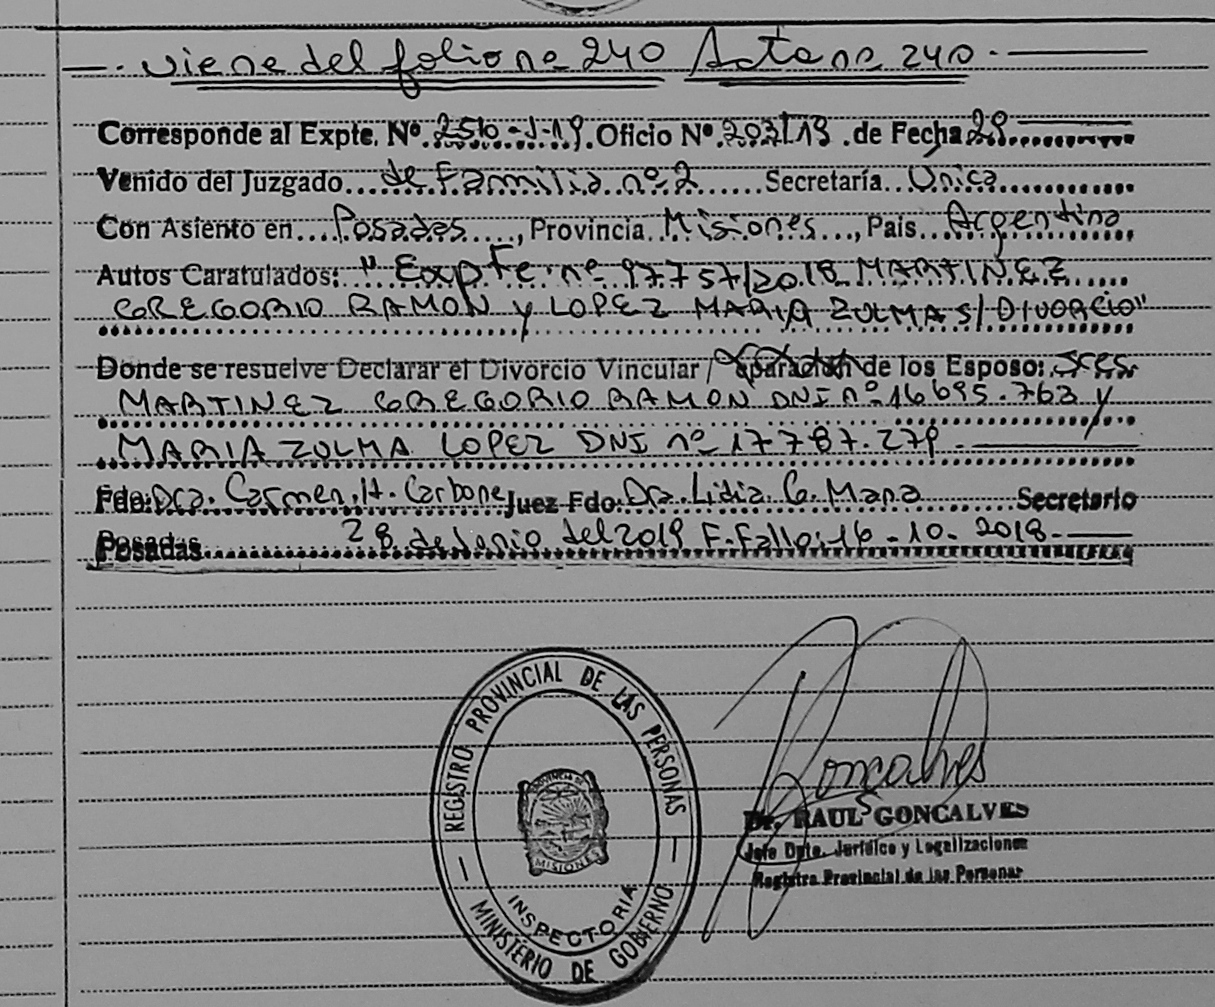 viene del folio nº 240 Acta nº 240.
Corresponde al Expte. Nº. 2510-J-19. Oficio Nº. 203/19 .de Fecha 28
Venido del Juzgado...de Familia nº 2......Secretaría..Unica............
Con Asiento en...Posadas...., Provincia.Misiones..., País..Argentina
Autos Caratulados: "Expte. nº 97757/2018 MARTINEZ
GREGORIO RAMON y LOPEZ MARIA ZULMA S/ DIVORCIO"
Donde se resuelve Declarar el Divorcio Vincular / Separación de los Esposo: Sres
MARTINEZ GREGORIO RAMON DNI nº 16695.763 y
MARIA ZULMA LOPEZ DNI nº 17787.279.
Fdo: Dra. Carmen.H. Carbone Juez Fdo: Dra. Lidia G. Mana Secretario
Posadas 28 de Junio del 2019 F. Fallo: 16-10-2018.
REGISTRO PROVINCIAL DE LAS PERSONAS
PROVINCIA DE
MISIONES
INSPECTORIA
MINISTERIO DE GOBIERNO
Goncalves
Dr. RAUL GONCALVES
Jefe Dpto. Jurídico y Legalizaciones
Registro Provincial de las Personas